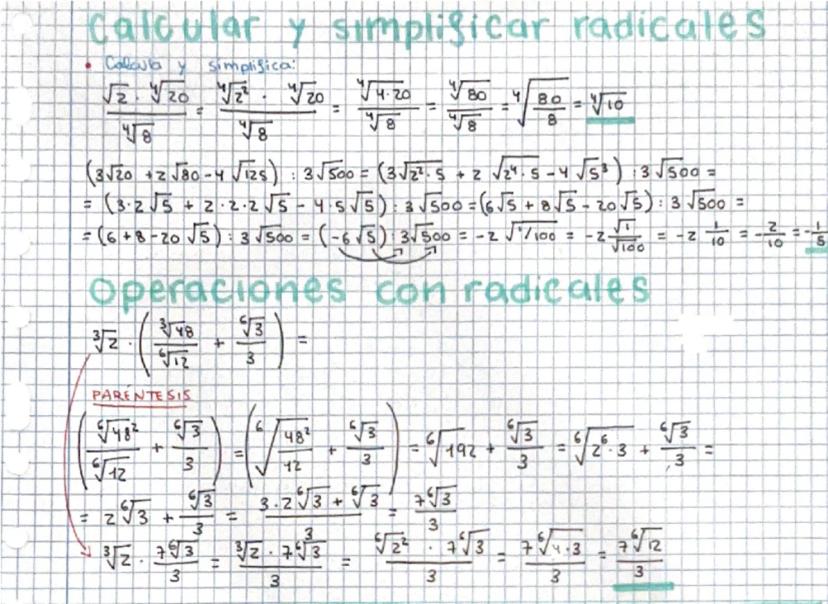 Calcular y simplificar radicales
• Calcula y simplifica:
(√2 · ⁴√20)/⁴√8 = (⁴√2² · ⁴√20)/⁴√8 = ⁴√(4·20)/⁴√8 = ⁴√80/⁴√8 = ⁴√(80/8) = ⁴√10
(3√20 + 2√80 - 4√125) : 3√500 = (3√(2²·5) + 2√(2⁴·5) - 4√5³) : 3√500 =
= (3·2√5 + 2·2·2√5 - 4·5√5) : 3√500 = (6√5 + 8√5 - 20√5) : 3√500 =
= (6+8-20√5) : 3√500 = (-6√5) : 3√500 = -2√(1/100) = -2 √1/√100 = -2 1/10 = -2/10 = -1/5
Operaciones con radicales
³√2 · (³√48/⁶√12 + ⁶√3/3) =
PARÉNTESIS
(⁶√48²/⁶√12 + ⁶√3/3) = (⁶√(48²/12) + ⁶√3/3) = ⁶√192 + ⁶√3/3 = ⁶√(2⁶·3) + ⁶√3/3 =
= 2⁶√3 + ⁶√3/3 = (3·2⁶√3 + ⁶√3)/3 = 7⁶√3/3
³√2 · 7⁶√3/3 = (³√2 · 7⁶√3)/3 = (⁶√2² · 7⁶√3)/3 = 7⁶√(4·3)/3 = 7⁶√12/3